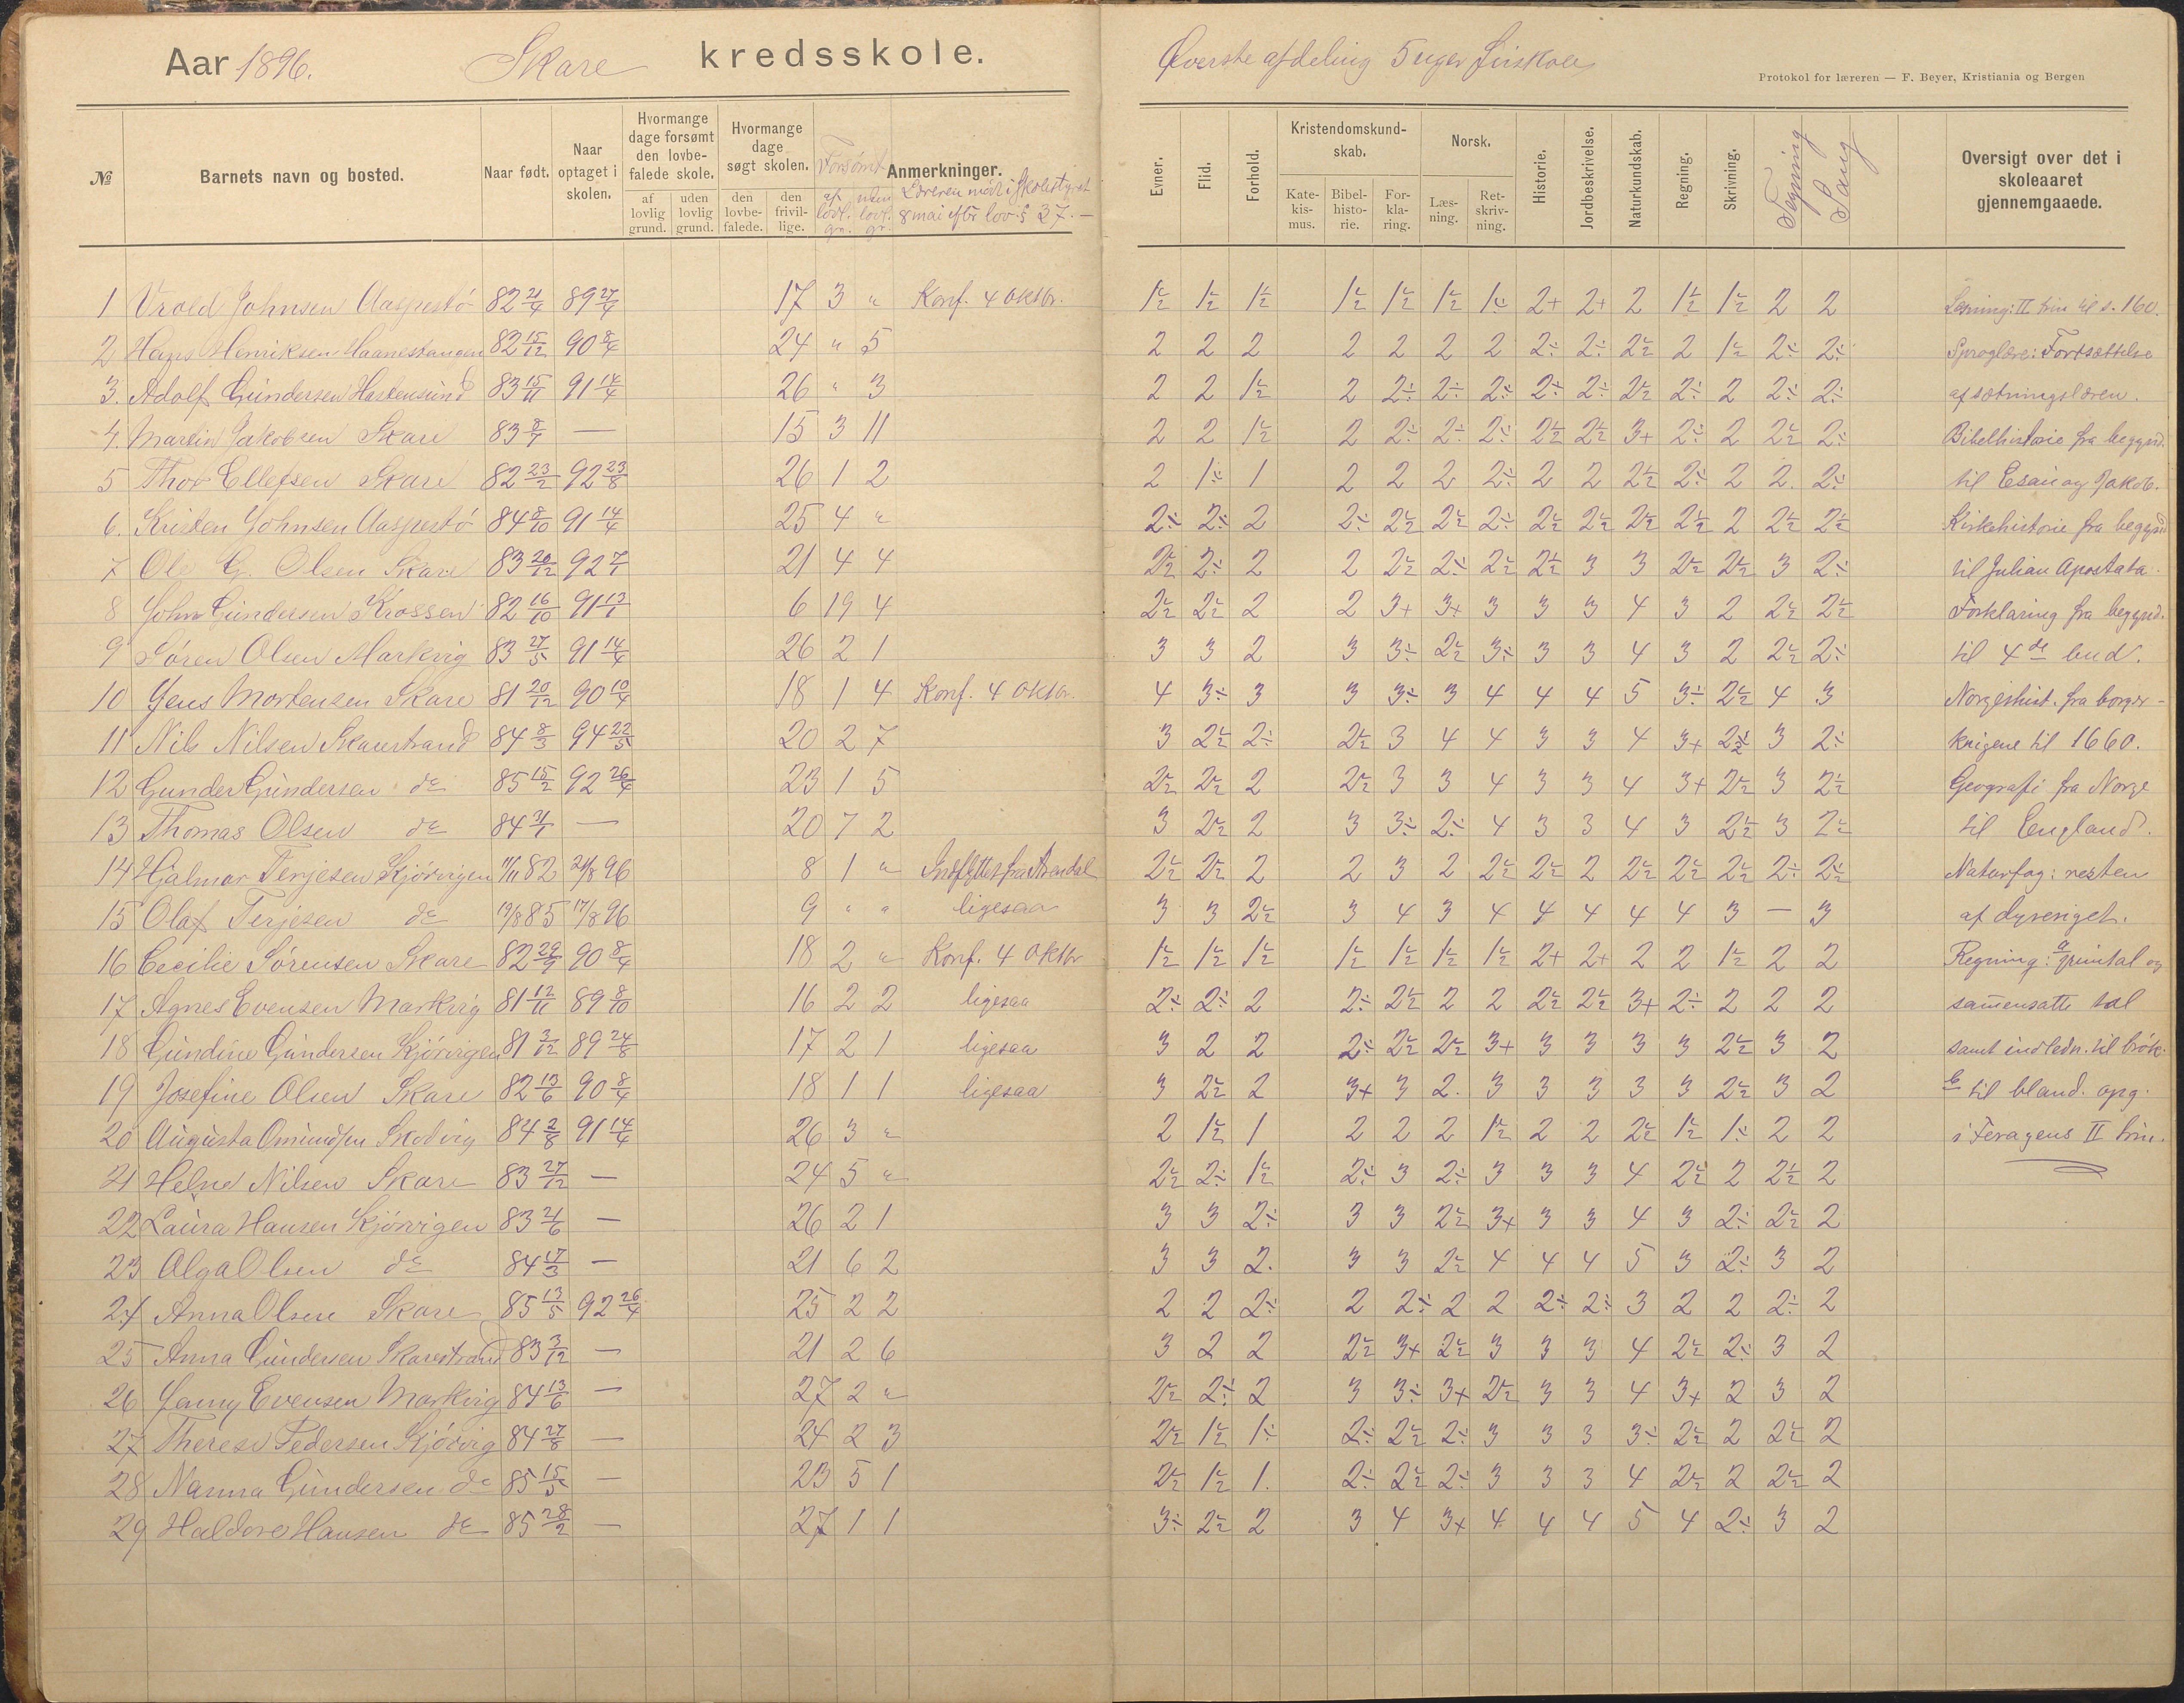 Aar 1896. Skare kredsskole.
Øverste afdeling 5 uger friskole
Protokol for læreren — F. Beyer, Kristiania og Bergen
№ Barnets navn og bosted. Naar født. Naar optaget i skolen. Hvormange dage forsømt den lovbefalede skole. af lovlig grund. uden lovlig grund. Hvormange dage søgt skolen. den lovbefalede. den frivillige. Forsømt af lovl. gr. uden lovl. gr. Anmerkninger. Læreren mödt i skolestyret 8 mai efter lov. § 37. —
Evner. Flid. Forhold. Kristendomskundskab. Katekismus. Bibelhistorie. Forklaring. Norsk. Læsning. Retskrivning. Historie. Jordbeskrivelse. Naturkundskab. Regning. Skrivning. Tegning Sang Oversigt over det i skoleaaret gjennemgaaede.
1 Vrold Johnsen Aaspestø 82 21/4 89 27/4 17 3 " Konf. 4 oktbr. 1½ 1½ 1½ 1½ 1½ 1½ 1÷ 2+ 2+ 2 1½ 1½ 2 2 Læsning: II trin til s. 160.
2 Hans Henriksen Haanestangen 82 15/12 90 8/4 24 " 5 2 2 2 2 2 2 2 2÷ 2÷ 2½ 2 1½ 2÷ 2÷ Sproglære: Fortsættelse
3. Adolf Gundersen Hastensund 83 15/11 91 14/4 26 " 3 2 2 1½ 2 2÷ 2÷ 2÷ 2÷ 2÷ 2½ 2÷ 2 2÷ 2÷ af sætningslæren.
4. Martin Jakobsen Skare 83 8/7 — 15 3 11 2 2 1½ 2 2÷ 2÷ 2÷ 2½ 2½ 3+ 2÷ 2 2½ 2÷ Bibelhistorie fra begynd.
5 Thor Ellefsen Skare 82 23/2 92 23/8 26 1 2 2 1÷ 1 2 2 2 2÷ 2 2 2½ 2÷ 2 2. 2÷ til Esau og Jakob.
6. Kristen Johnsen Aaspestø 84 8/10 91 14/4 25 4 " 2÷ 2÷ 2 2÷ 2½ 2½ 2÷ 2½ 2½ 2½ 2½ 2 2½ 2½ Kirkehistorie fra begynd
7 Ole G. Olsen Skare 83 20/12 92 7/1 21 4 4 2½ 2÷ 2 2 2½ 2÷ 2½ 2½ 3 3 2½ 2½ 3 2÷ til Julian Apostata.
8 John Gundersen Krossen 82 16/10 91 13/1 6 19 4 2½ 2½ 2 2 3+ 3+ 3 3 3 4 3 2 2½ 2½ Forklaring fra begynd.
9 Søren Olsen Markvig 83 27/5 91 14/4 26 2 1 3 3 2 3 3÷ 2½ 3÷ 3 3 4 3 2 2½ 2÷ til 4de bud.
10 Jens Mortensen Skare 81 20/12 90 10/4 18 1 4 Konf. 4 oktbr. 4 3÷ 3 3 3÷ 3 4 4 4 5 3÷ 2½ 4 3 Norgeshist. fra borger-
11 Nils Nilsen Skarestrand 84 8/3 94 22/5 20 2 7 3 2½ 2÷ 2½ 3 4 4 3 3 4 3+ 2½ 3 2÷ krigene til 1660.
12 Gunder Gundersen do 85 15/2 92 26/4 23 1 5 2½ 2½ 2 2½ 3 3 4 3 3 4 3+ 2½ 3 2½ Geografi fra Norge
13 Thomas Olsen do 84 — 20 7 2 3 2½ 2 3 3÷ 2÷ 4 3 3 4 3 2½ 3 2½ til England.
14 Hjalmar Terjesen Skjörvigen 11/11 82 21/8 96 8 1 " Indflyttet fra Arendal 2½ 2½ 2 2 3 2 2½ 2½ 2 2½ 2½ 2½ 2÷ 2½ Naturfag: resten
15 Olaf Terjesen do 19/8 85 17/8 96 9 " " ligesaa 3 3 2½ 3 4 3 4 4 4 4 4 3 — 3 af dyreriget.
16 Cecilie Sörensen Skare 82 29/9 90 8/4 18 2 " Konf. 4 oktbr 1½ 1½ 1½ 1½ 1½ 1½ 1½ 2+ 2+ 2 2 1½ 2 2 Regning: a primtal og
17 Agnes Evensen Markvig 81 12/11 89 8/10 16 2 2 ligesaa 2÷ 2÷ 2 2÷ 2½ 2 2 2½ 2½ 3+ 2÷ 2 2 2 sammensatte tal
18 Gundine Gundersen Skjörvigen 81 3/12 89 24/8 17 2 1 ligesaa 3 2 2 2÷ 2½ 2½ 3+ 3 3 3 3 2½ 3 2 samt indledn. til brök.
19 Josefine Olsen Skare 82 13/6 90 8/4 18 1 1 ligesaa 3 2½ 2 3+ 3 2. 3 3 3 3 3 2½ 3 2 b til bland. opg.
20 Augusta Omundsen Skotvig 84 2/8 91 14/4 26 3 " 2 1½ 1 2 2 2 1½ 2 2 2½ 1½ 1÷ 2 2 i Feragens II trin.
21 Helne Nilsen Skare 83 27/12 — 24 5 " 2½ 2÷ 1½ 2÷ 3 2÷ 3 3 3 4 2½ 2 2½ 2
22 Laura Hansen Skjörvigen 83 21/6 — 26 2 1 3 3 2÷ 3 3 2½ 3+ 3 3 4 3 2÷ 2½ 2
23 Olga Olsen do 84 17/3 — 21 6 2 3 3 2. 3 3 2½ 4 4 4 5 3 2÷ 3 2
24 Anna Olsen Skare 85 13/5 92 26/4 25 2 2 2 2 2÷ 2 2÷ 2 2 2÷ 2÷ 3 2 2 2÷ 2
25 Anna Gundersen Skarestrand 83 3/12 — 21 2 6 3 2 2 2½ 3+ 2½ 3 3 3 4 2½ 2÷ 3 2
26 Jenny Evensen Markvig 84 13/6 — 27 2 " 2½ 2÷ 2 3 3÷ 3+ 2½ 3 3 4 3+ 2 3 2
27 Therese Pedersen Skjörvig 84 27/8 — 24 2 3 2½ 1½ 1÷ 2÷ 2½ 2÷ 3 3 3 3÷ 2½ 2 2½ 2
28 Nanna Gundersen do 85 15/5 — 23 5 1 2½ 1½ 1. 2÷ 2½ 2÷ 3 3 3 4 2½ 2 2½ 2
29 Haldore Hansen do 85 28/2 — 27 1 1 3÷ 2½ 2 3 4 3+ 4 4 4 5 4 2÷ 3 2